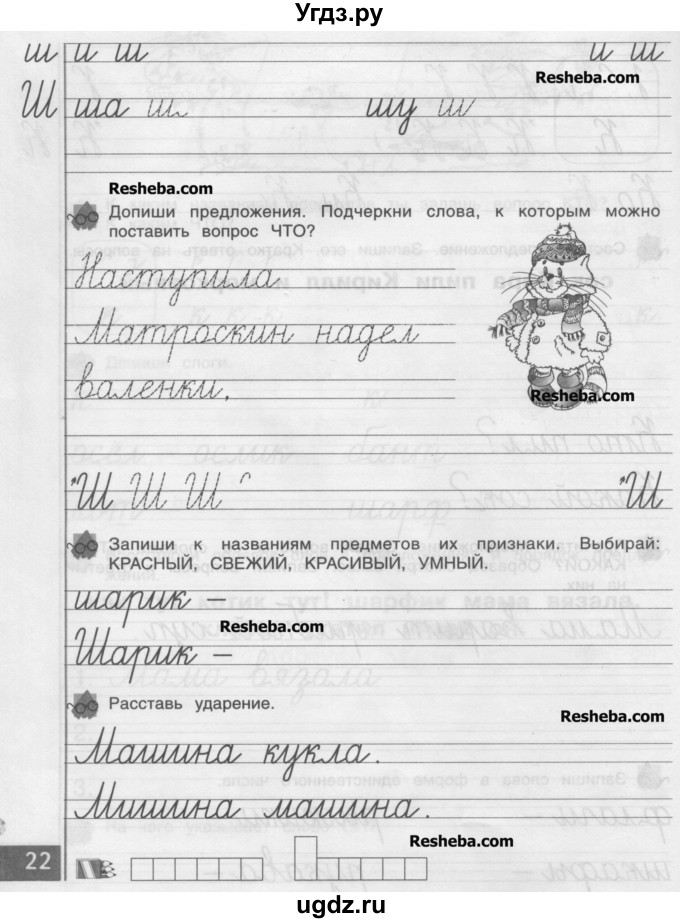 Угдз.ру
ш и ш и ш
Resheba.com
Ш ша ш шу ш
Resheba.com
Допиши предложения. Подчеркни слова, к которым можно
поставить вопрос ЧТО?
Наступила
Матроскин надел
валенки,
Resheba.com
Ш Ш Ш Ш
Запиши к названиям предметов их признаки. Выбирай:
КРАСНЫЙ, СВЕЖИЙ, КРАСИВЫЙ, УМНЫЙ.
шарик –
Resheba.com
Шарик –
Расставь ударение.
Resheba.com
Машина кукла.
Мишина машина.
22
ugdz.ru